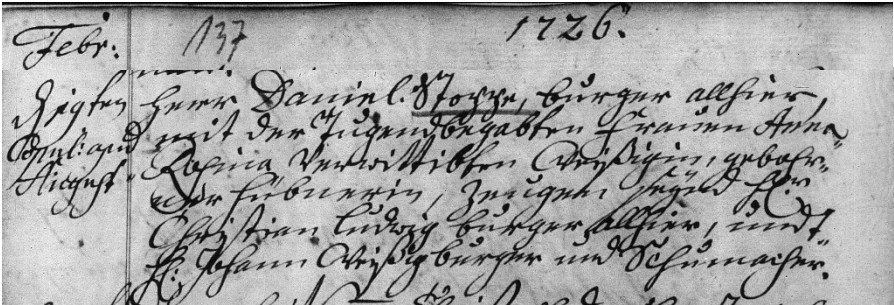 1726.
Febr: 137
Herr Daniel Stoppe, burger allhier,
mit der Tugendbegabten Frauen Anna
Rosina Verwittibten Weißigin, gebohr-
ner Hübnerin, Zeugen seynd Hr.
Christian Ludwig burger allhier, undt
H. Johann Weißig burger und Schumacher.